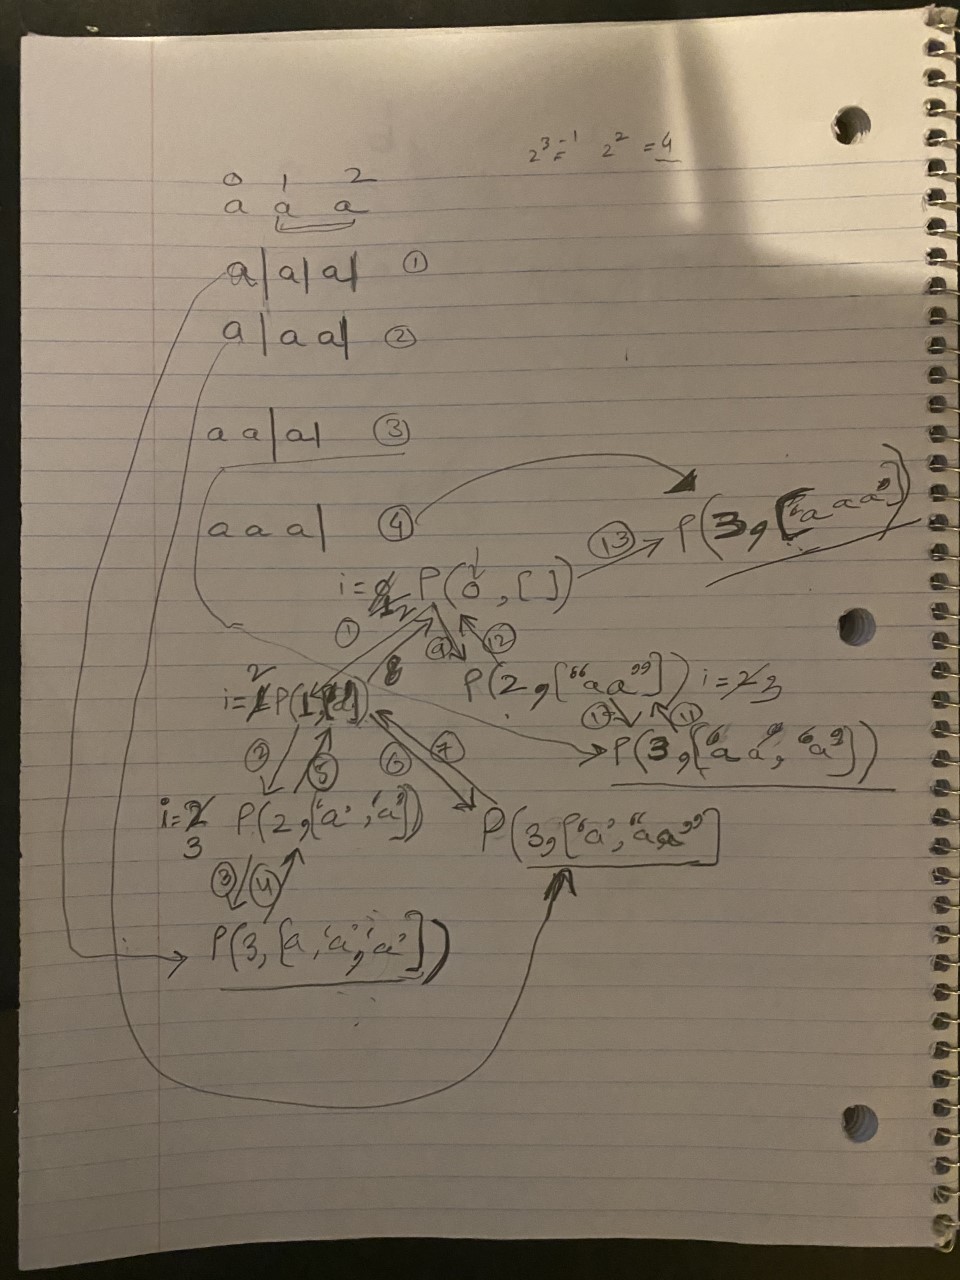 2³⁻¹ = 2² = 4
0 1 2
a a a
a|a|a| ①
a|a a| ②
a a|a| ③
a a a| ④
⑬ P(3, ["a a a"])
i = 0 1 2 P(0, [])
① 8 ⑨ ⑫
P(2, ["aa"]) i = 2 3
i = 1 2 P(1,
⑪
P(3, ['aa', 'a'])
② ⑤ ⑥ ⑦
i = 2 3 P(2, ['a', 'a'])
P(3, ['a', "aa"]
③ ④
P(3, [a, 'a', 'a'])